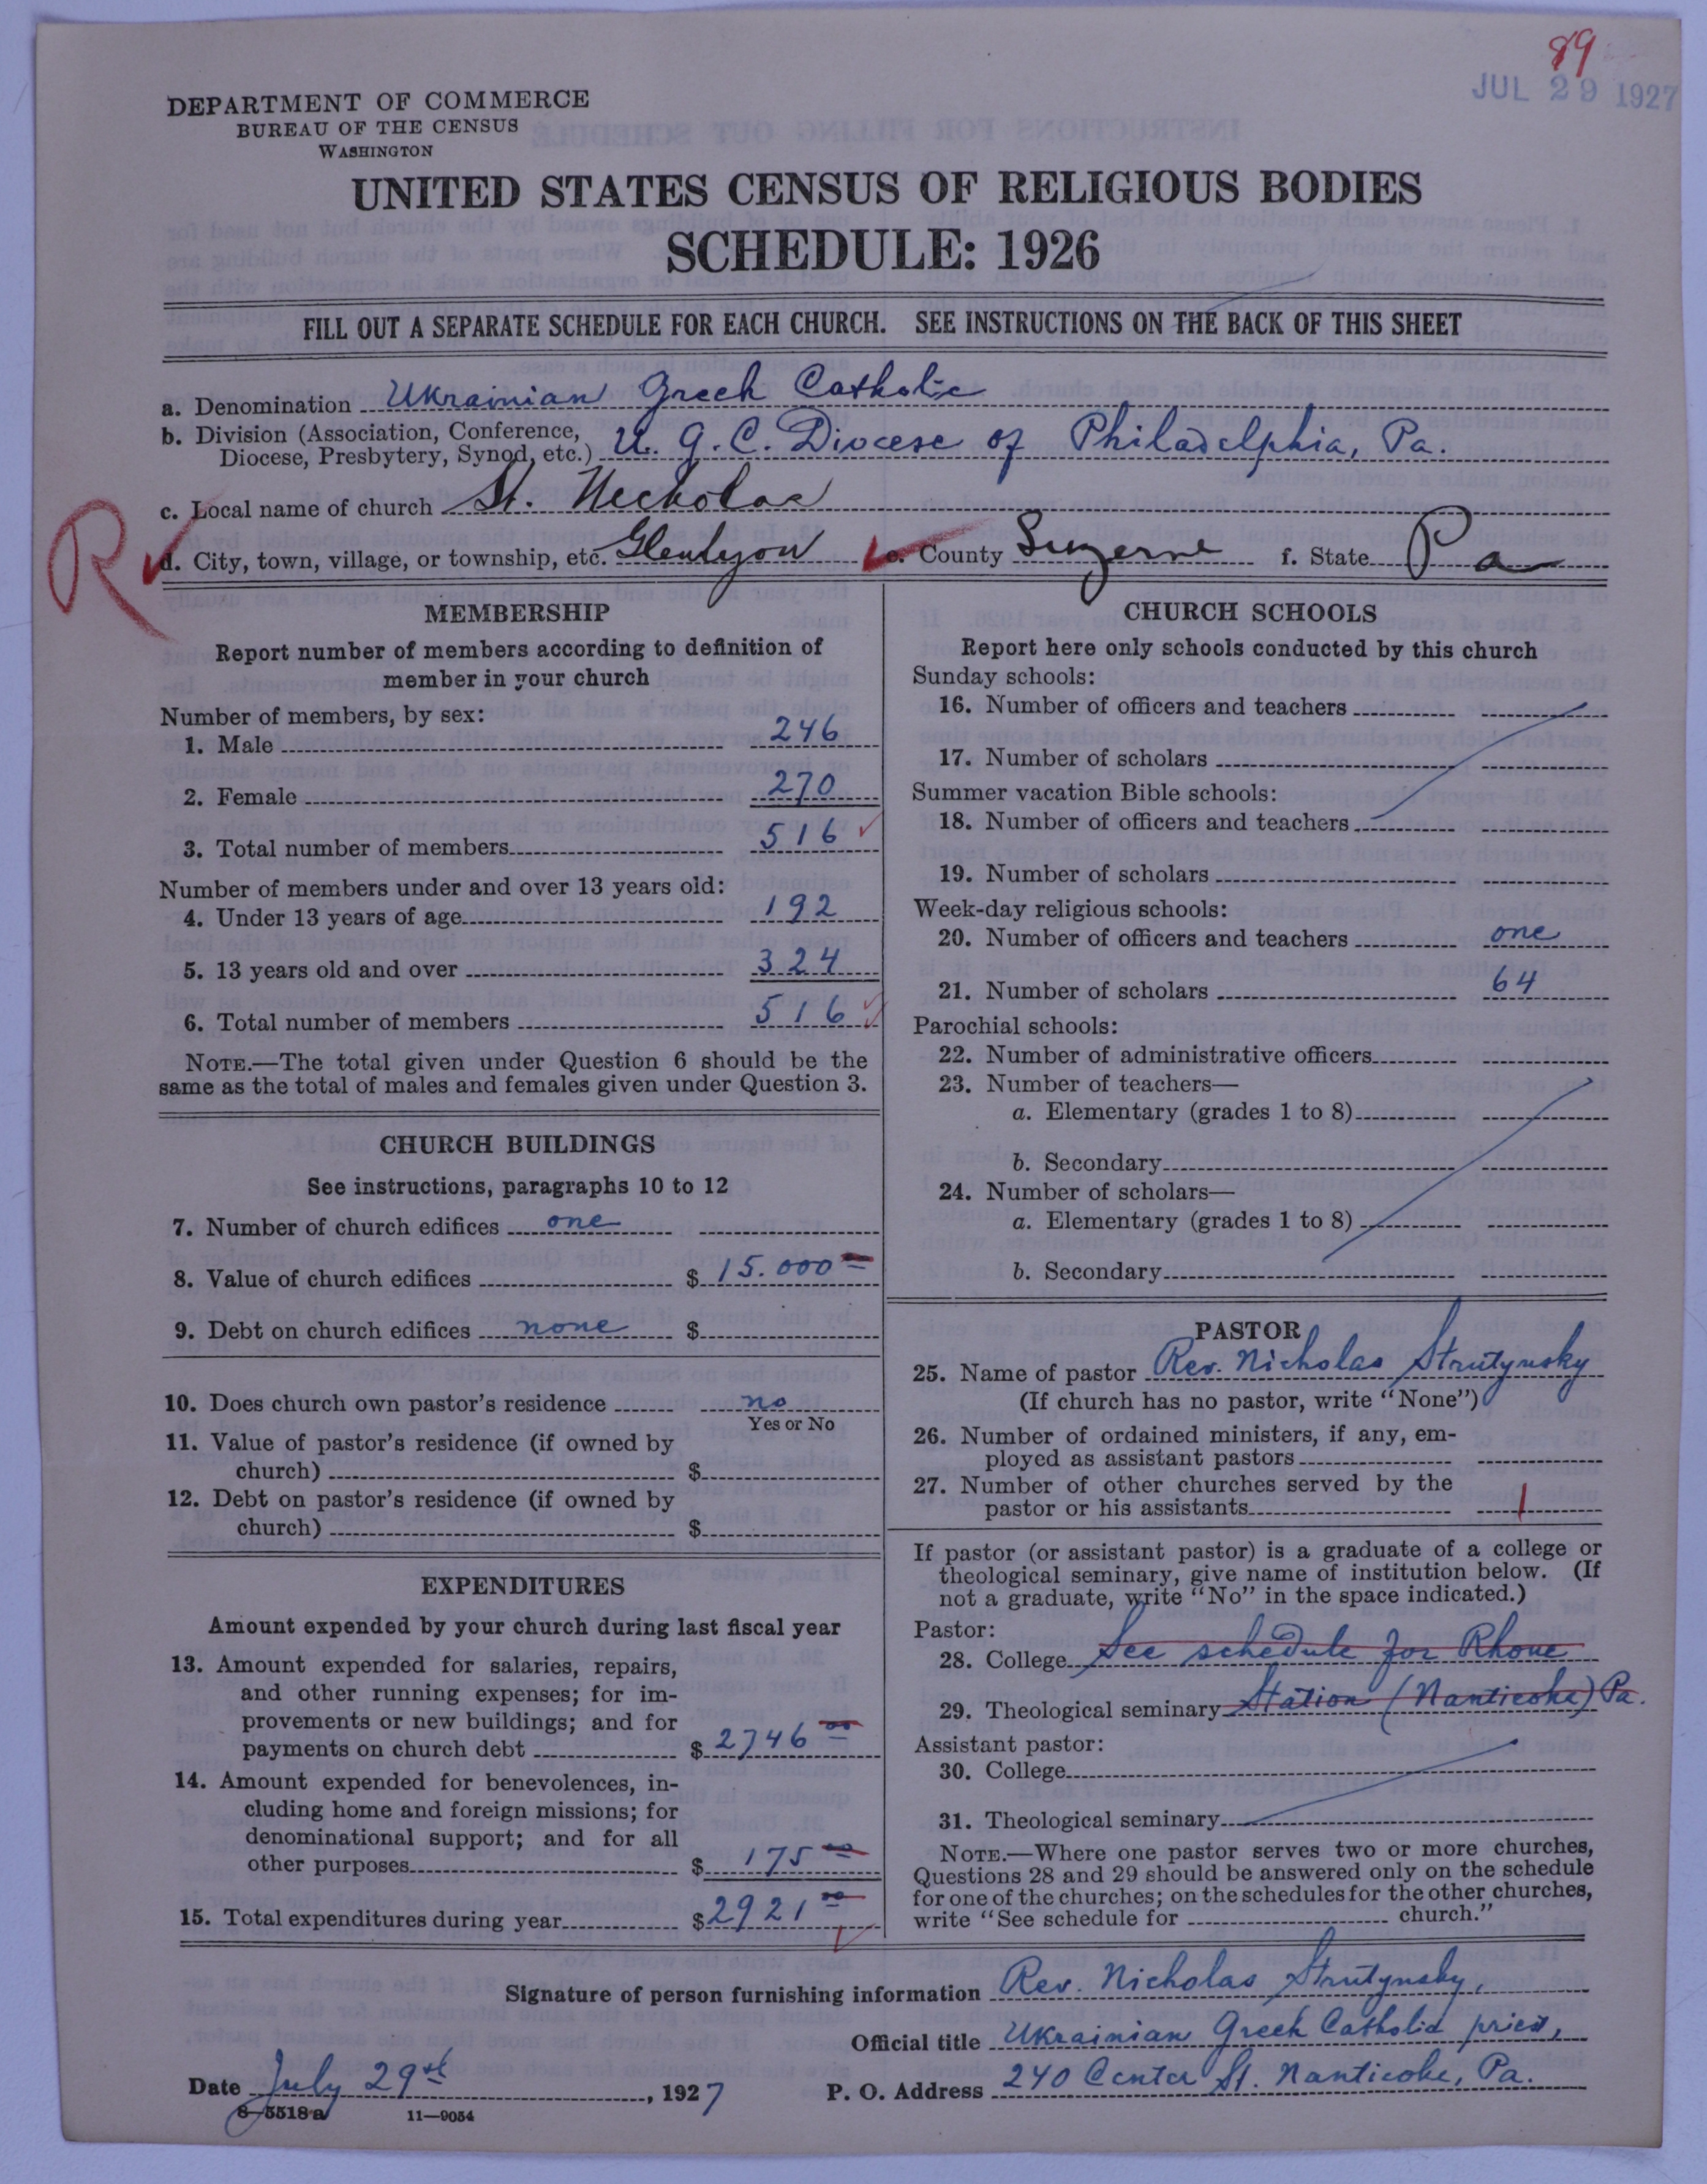 89
JUL 29 1927
DEPARTMENT OF COMMERCE
BUREAU OF THE CENSUS
WASHINGTON
UNITED STATES CENSUS OF RELIGIOUS BODIES
SCHEDULE: 1926
FILL OUT A SEPARATE SCHEDULE FOR EACH CHURCH. SEE INSTRUCTIONS ON THE BACK OF THIS SHEET
a. Denomination Ukrainian Greek Catholic
b. Division (Association, Conference,
Diocese, Presbytery, Synod, etc.) U. G. C. Diocese of Philadelphia, Pa.
c. Local name of church St. Necholas
R
d. City, town, village, or township, etc. Glenlyon e. County Luzerne f. State Pa
MEMBERSHIP
Report number of members according to definition of
member in your church
Number of members, by sex:
1. Male 246
2. Female 270
3. Total number of members 516
Number of members under and over 13 years old:
4. Under 13 years of age 192
5. 13 years old and over 324
6. Total number of members 516
NOTE.—The total given under Question 6 should be the
same as the total of males and females given under Question 3.
CHURCH BUILDINGS
See instructions, paragraphs 10 to 12
7. Number of church edifices one
8. Value of church edifices $ 15.000 00
9. Debt on church edifices none $
10. Does church own pastor's residence no
Yes or No
11. Value of pastor's residence (if owned by
church) $
12. Debt on pastor's residence (if owned by
church) $
EXPENDITURES
Amount expended by your church during last fiscal year
13. Amount expended for salaries, repairs,
and other running expenses; for im-
provements or new buildings; and for
payments on church debt $ 2746 00
14. Amount expended for benevolences, in-
cluding home and foreign missions; for
denominational support; and for all
other purposes $ 175 00
15. Total expenditures during year $ 2921 00
CHURCH SCHOOLS
Report here only schools conducted by this church
Sunday schools:
16. Number of officers and teachers
17. Number of scholars
Summer vacation Bible schools:
18. Number of officers and teachers
19. Number of scholars
Week-day religious schools:
20. Number of officers and teachers one
21. Number of scholars 64
Parochial schools:
22. Number of administrative officers
23. Number of teachers—
a. Elementary (grades 1 to 8)
b. Secondary
24. Number of scholars—
a. Elementary (grades 1 to 8)
b. Secondary
PASTOR
25. Name of pastor Rev. Nicholas Strutynsky
(If church has no pastor, write "None")
26. Number of ordained ministers, if any, em-
ployed as assistant pastors
27. Number of other churches served by the
pastor or his assistants 1
If pastor (or assistant pastor) is a graduate of a college or
theological seminary, give name of institution below. (If
not a graduate, write "No" in the space indicated.)
Pastor:
28. College See schedule for Rhone
29. Theological seminary Station (Nanticoke) Pa.
Assistant pastor:
30. College
31. Theological seminary
NOTE.—Where one pastor serves two or more churches,
Questions 28 and 29 should be answered only on the schedule
for one of the churches; on the schedules for the other churches,
write "See schedule for church."
Signature of person furnishing information Rev. Nicholas Strutynsky,
Official title Ukrainian Greek Catholic priest,
Date July 29th, 1927 P. O. Address 240 Center St. Nanticoke, Pa.
8—5518a 11—9054